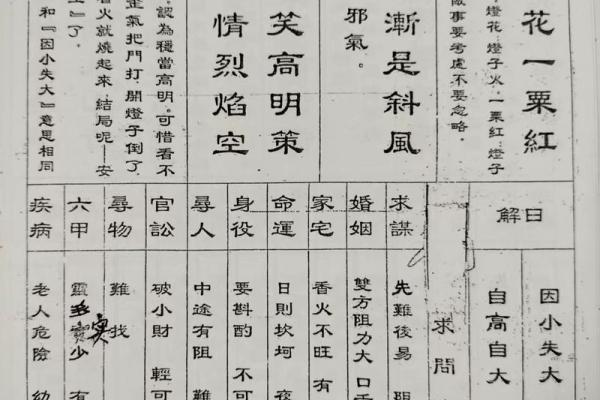 花一粟紅
燈花：燈子火，一粟紅：燈子
做事要考慮不要忽略。
漸是斜風
邪氣。
笑高明策
情烈焰空
。認為穩當高明。可惜看不
歪氣把門打開燈子倒了
火就燒起來，結局呢——安
』了。
和『因小失大』意思相同
日解
因小失大
自高自大
求問
求謀
先難後易
婚姻
雙方阻力大 口
家宅
香火不旺 有
命運
日則坎坷 夜
身役
要斟酌 不可
尋人
中途有阻 難
官訟
破小財 輕可
尋物
難找
六甲
靈多實少 有
疾病
老人危險 幼